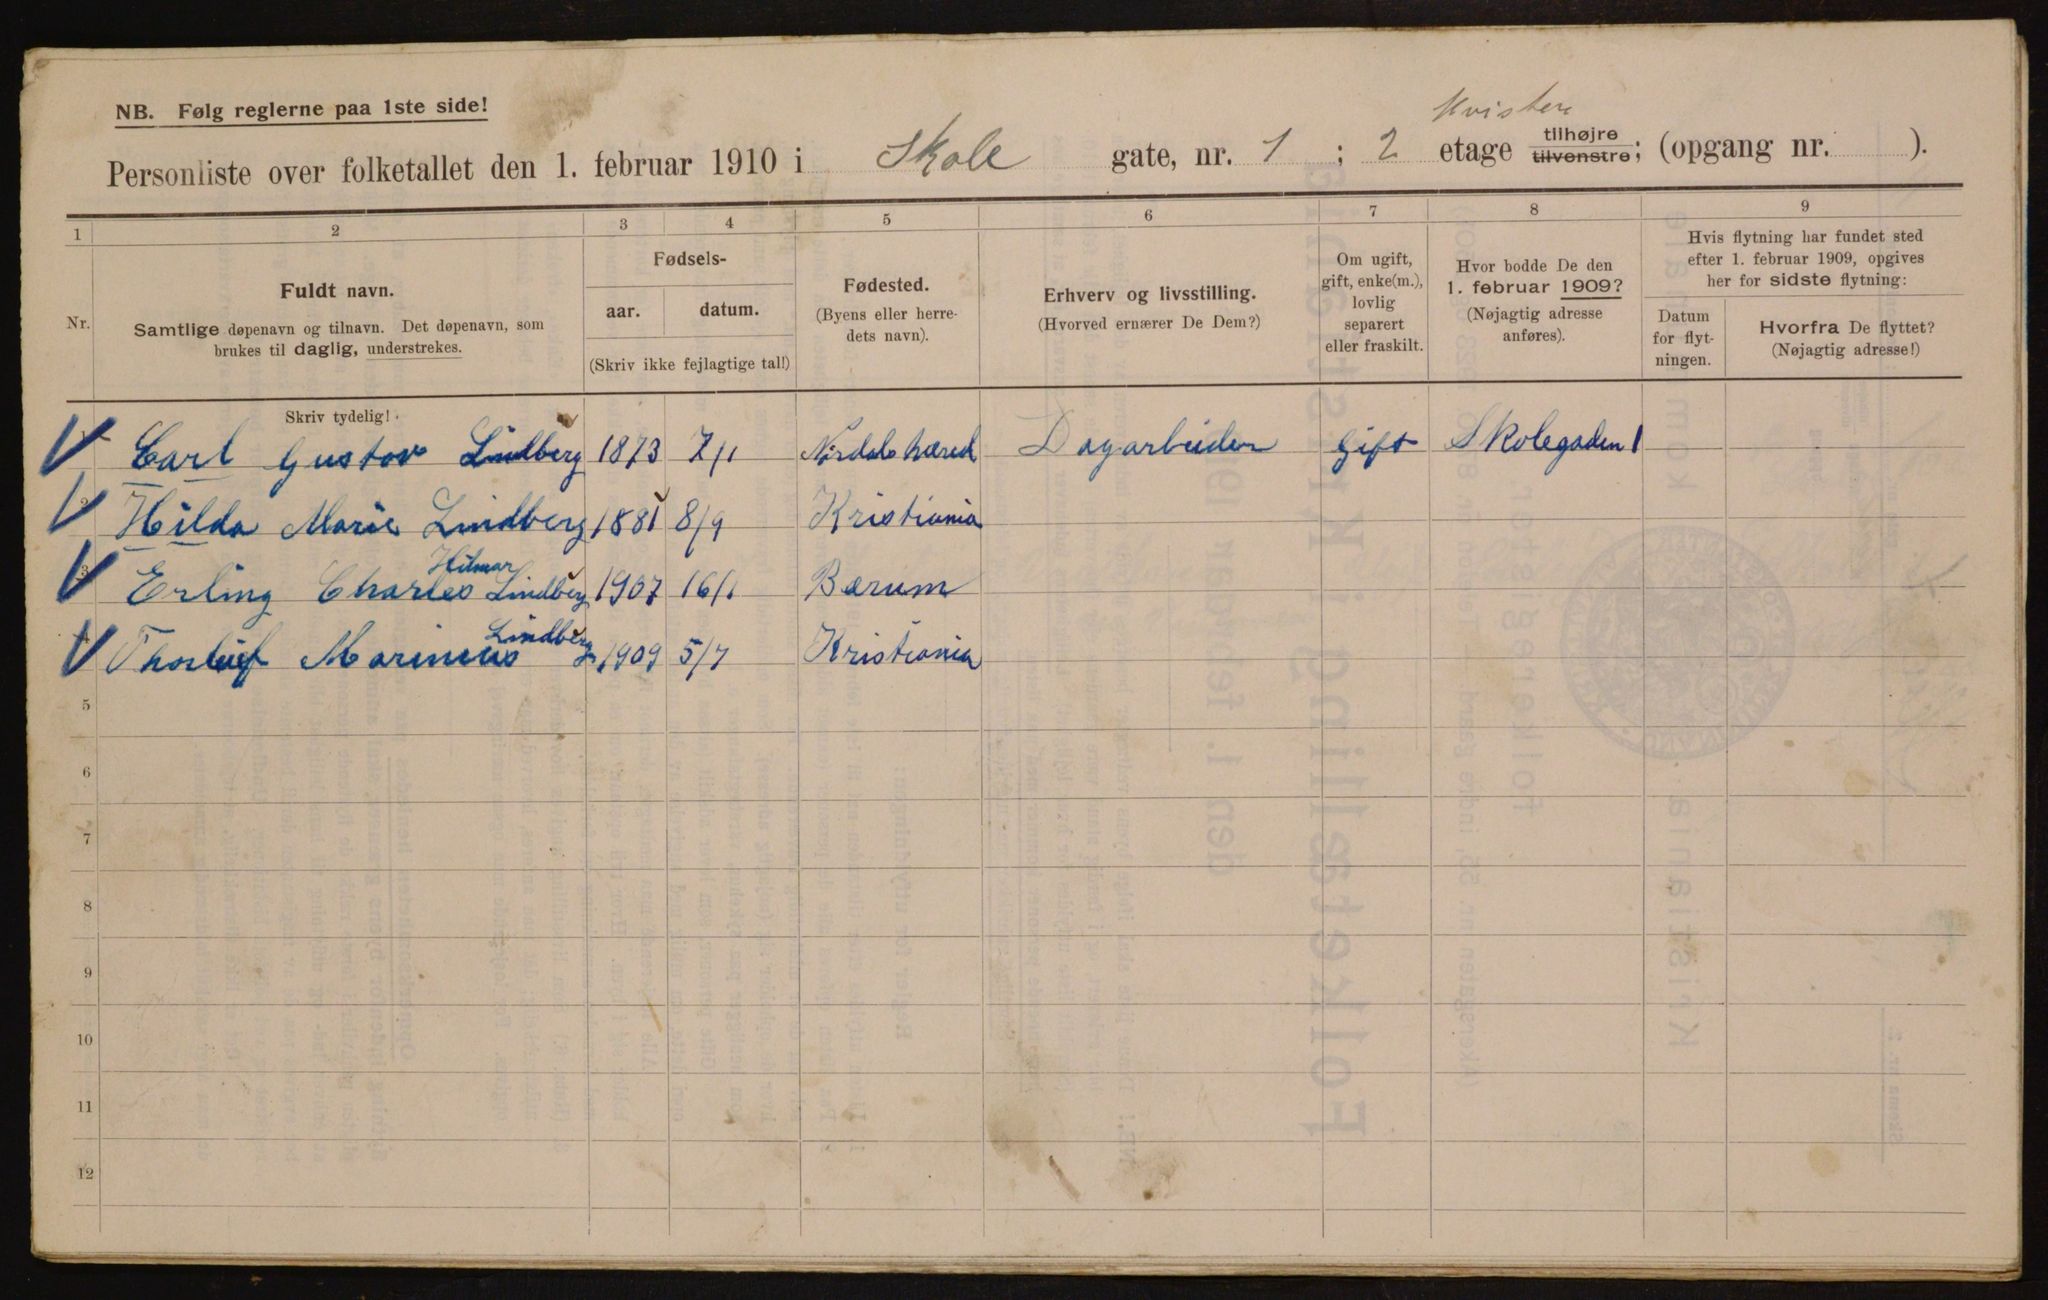 NB. Følg reglerne paa 1ste side!
Kvisten
Personliste over folketallet den 1. februar 1910 i Skole gate, nr. 1 ; 2 etage tilhøjre tilvenstre; (opgang nr. ).
1 2 3 4 5 6 7 8 9
Nr.
Fuldt navn.
Samtlige døpenavn og tilnavn. Det døpenavn, som
brukes til daglig, understrekes.
Fødsels-
aar. datum.
(Skriv ikke fejlagtige tal!)
Fødested.
(Byens eller herre-
dets navn).
Erhverv og livsstilling.
(Hvorved ernærer De Dem?)
Om ugift,
gift, enke(m.),
lovlig
separert
eller fraskilt.
Hvor bodde De den
1. februar 1909?
(Nøjagtig adresse
anføres).
Hvis flytning har fundet sted
efter 1. februar 1909, opgives
her for sidste flytning:
Datum
for flyt-
ningen.
Hvorfra De flyttet?
(Nøjagtig adresse!)
Skriv tydelig!
1 Carl Gustav Lindberg 1873 7/1 Nordals hæred Dagarbeider Gift Skolegaden 1
2 Hilda Marie Lindberg 1881 8/9 Kristiania
3 Erling Charles Hilmar Lindberg 1907 16/1 Bærum
4 Thorleif Marinius Lindberg 1909 5/7 Kristiania
5
6
7
8
9
10
11
12